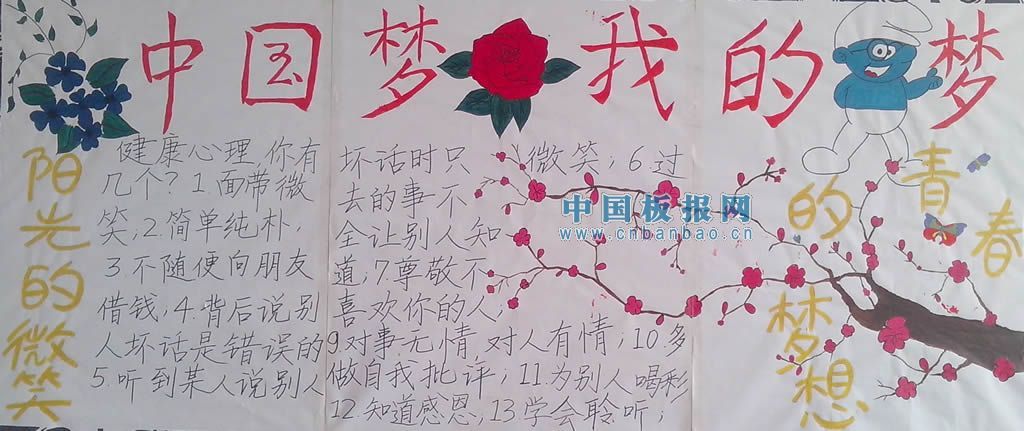 中国梦我的梦
阳光的微笑
健康心理,你有
几个?1面带微
笑;2.简单纯朴;
3不随便向朋友
借钱;4.背后说别
人坏话是错误的
5.听到某人说别人
坏话时只微笑;6过
去的事不
全让别人知
道;7.尊敬不
喜欢你的人;
9对事无情,对人有情;10.多
做自我批评;11.为别人喝彩
12.知道感恩;13学会聆听;
青春
的梦想
中国板报网
www.cnbanbao.cn